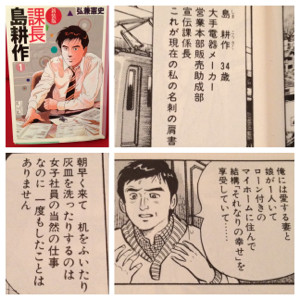 弘兼憲史
課長
島耕作
1
島 耕作 34歳
大手電器メーカー
営業本部販売助成部
宣伝課課長
これが現在の私の名刺の肩書
朝早く来て 机をふいたり
灰皿を洗ったりするのは
女子社員の当然の仕事
なのに 一度もしたことは
ありません
俺には愛する妻と
娘が1人いて
ローン付きの
マイホームに住んで
結構「それなりの幸せ」を
享受していて……